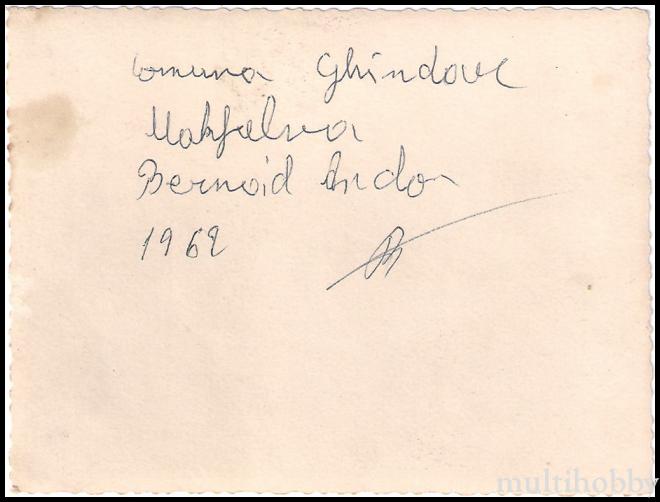 Comuna Ghindari
Makfalva
Bernád Andor
1962
multihobby